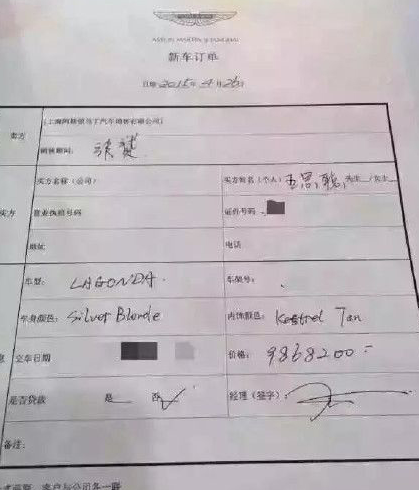 ASTON MARTIN SHANGHAI
新车订单
日期: 2015年4月26日
卖方
(上海阿斯顿马丁汽车销售有限公司)
销售顾问:
买方名称(公司) 买方姓名(个人) 王思聪 先生 /女士
买方 营业执照号码 证件号码
地址 电话
车型: LAGONDA 车架号:
车身颜色: Silver Blonde 内饰颜色: Kestrel Tan
息 交车日期 价格: 9868200
是否贷款 是 否 ✓ 经理(签字):
备注:
客户与公司各一联